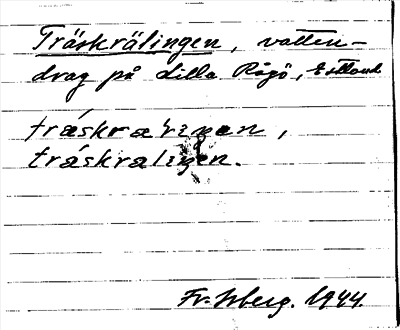 Träskrälingen, vatten-
drag på Lilla Rågö, Estland
tráskra'linan,
tráskralinen.
1944.